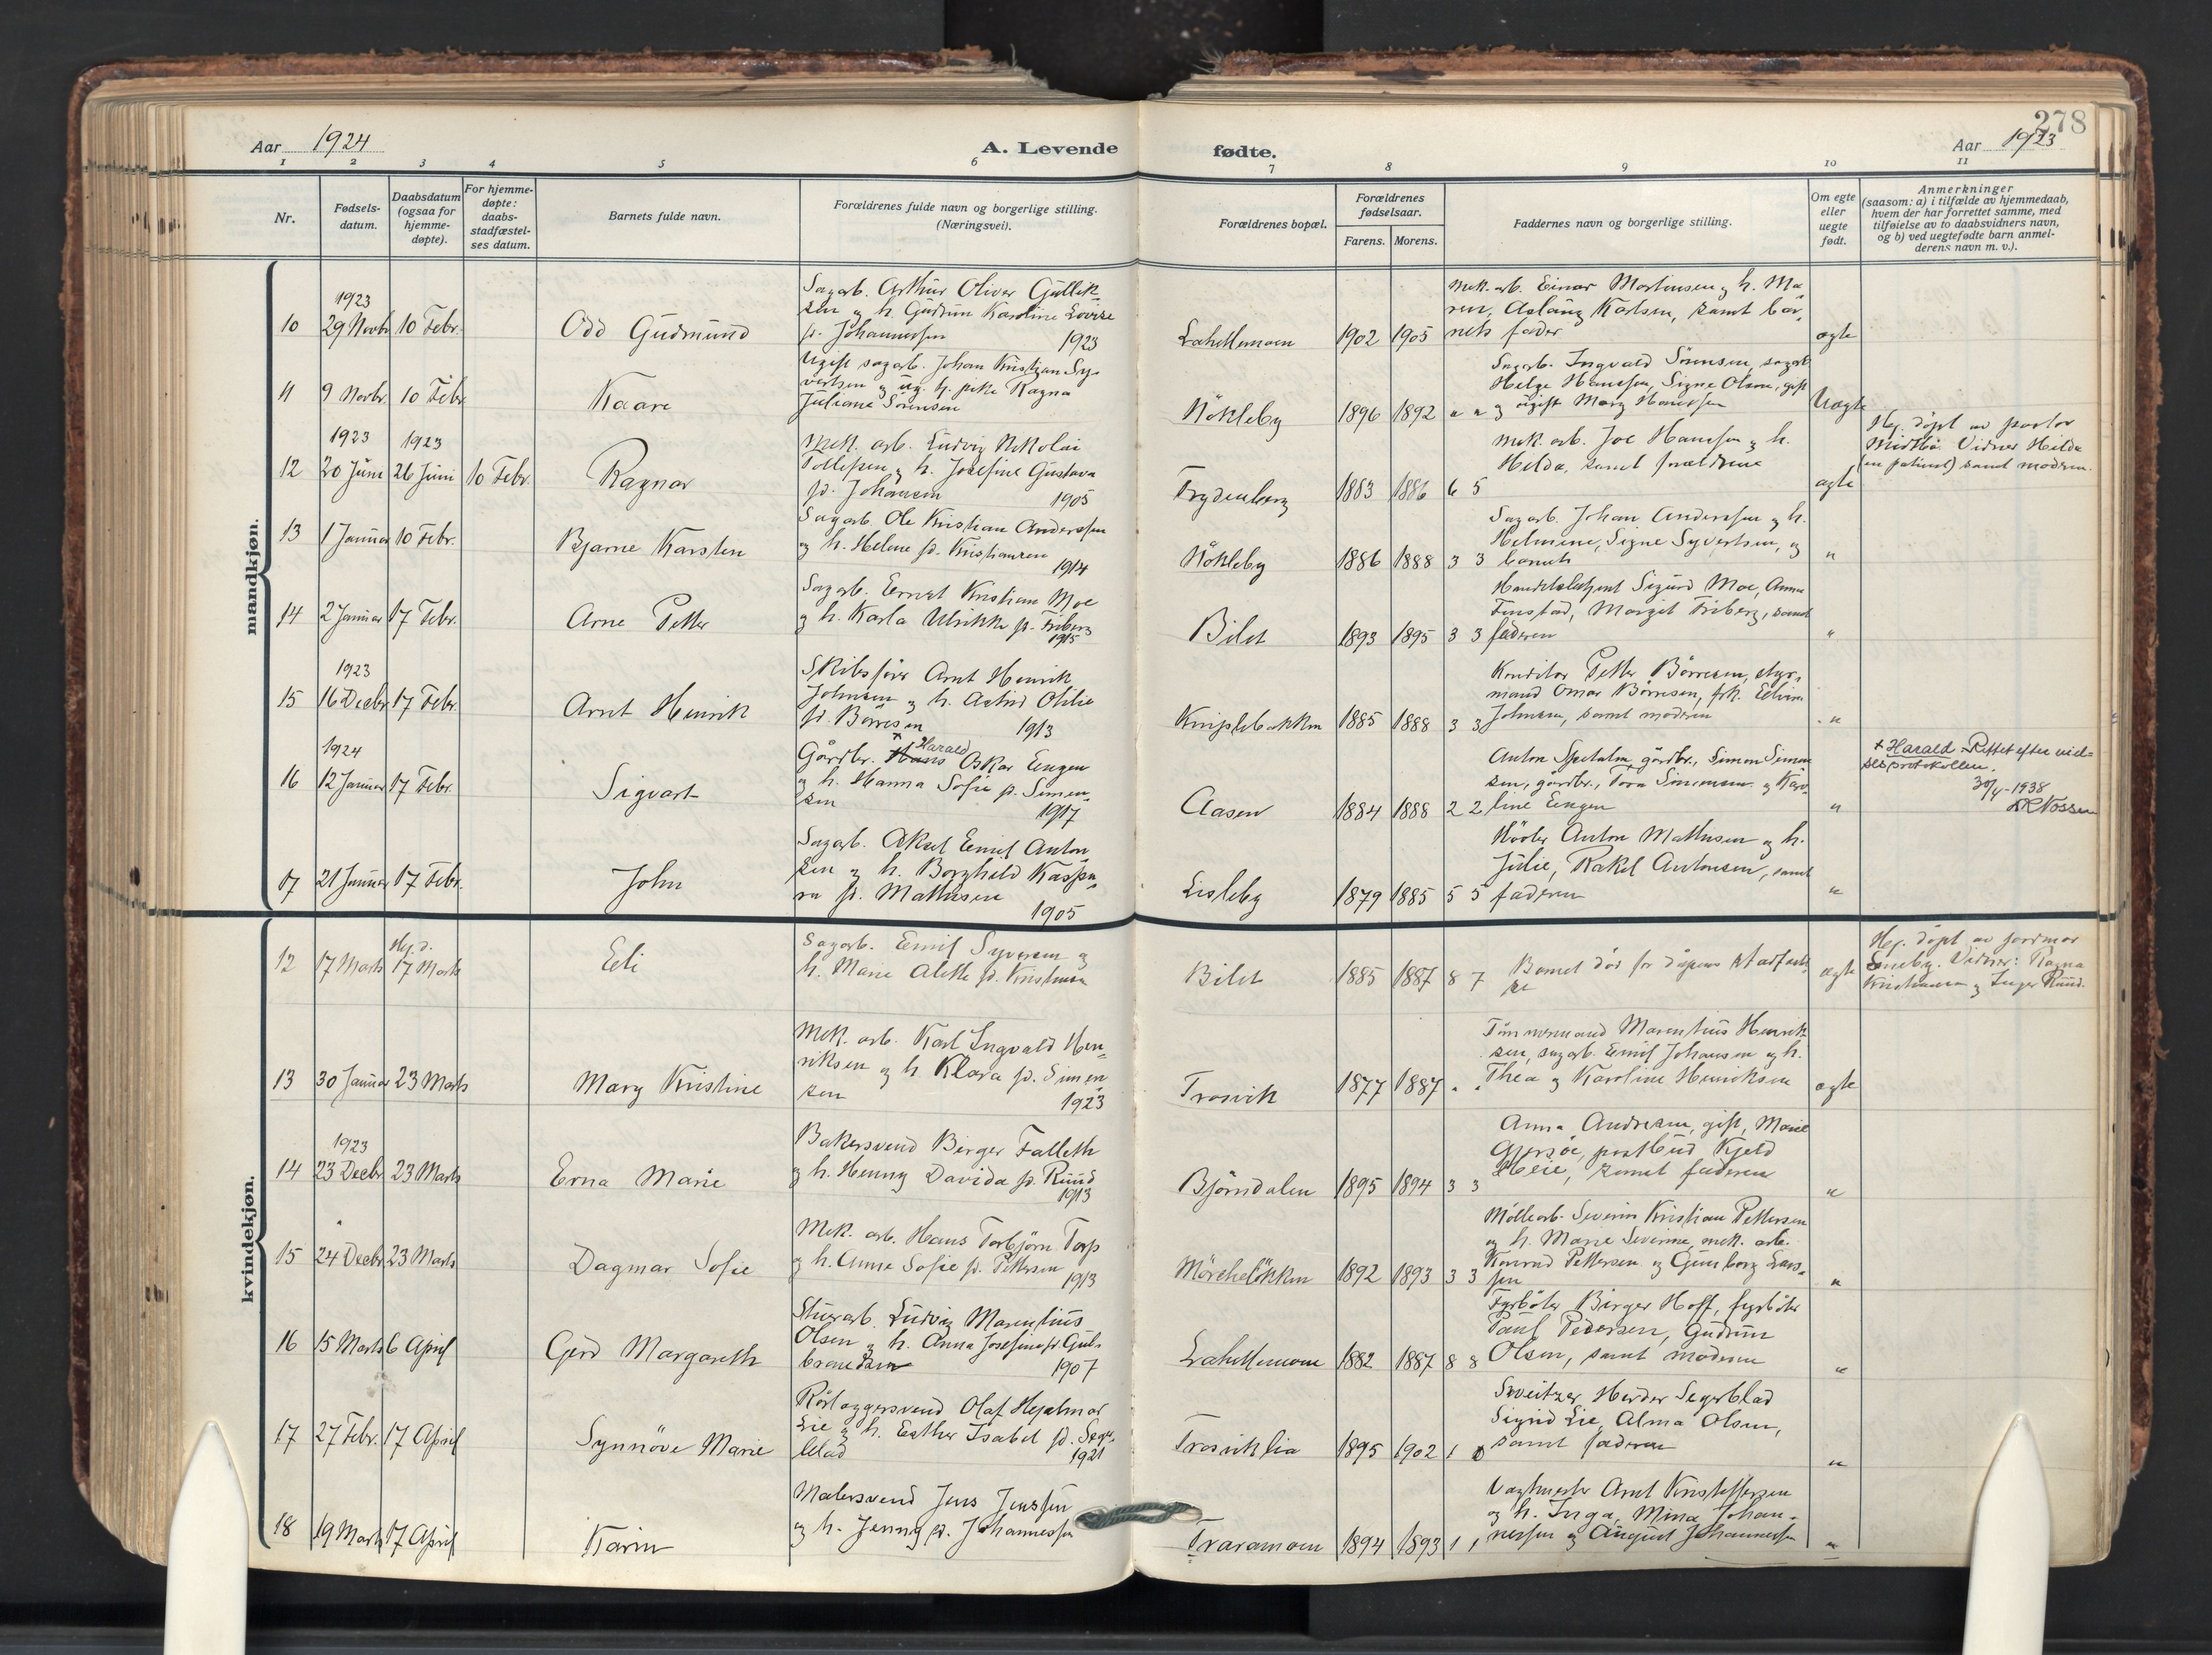 278
Aar 1924
A. Levende
fødte.
Aar 1923
1 2 3 4 5 6 7 8 9 10 11
Nr.
Fødsels-
datum.
Daabsdatum
(ogsaa for
hjemme-
døpte).
For hjemme-
døpte:
daabs-
stadfæstel-
ses datum.
Barnets fulde navn.
Forældrenes fulde navn og borgerlige stilling.
(Næringsvei).
Forældrenes bopæl.
Forældrenes
fødselsaar.
Farens. Morens.
Faddernes navn og borgerlige stilling.
Om egte
eller
uegte
født.
Anmerkninger
(saasom: a) i tilfælde av hjemmedaab,
hvem der har forrettet samme, med
tilføielse av to daabsvidners navn,
og b) ved uegtefødte barn anmel-
derens navn m. v.).
mandkjøn.
1923
10 29 Novbr 10 Febr.
Odd Gudmund
Sagarb. Arthur Oliver Gullik-
sen og h. Gudrun Karoline Lovise
f. Johannessen 1923
Lahellemoen 1902 1905
Mek. arb. Einar Martinsen og h. Ma
ren, Aslaug Karlsen, samt bar-
nets fader
ægte
11 9 Novbr. 10 Febr
Kaare
Ugift sagarb. Johan Kristian Sy-
vertsen og ug. tj. pike Ragna
Juliane Sørensen
Nökleby 1896 1892 " "
Sagarb. Ingvald Sörensen, sagarb.
Helge Hanssen, Signe Olsen, gift
og ugift Mary Hanssen
Uægte
1923 1923
12 20 Juni 26 Juni 10 Febr.
Ragnar
Mek. arb. Ludvig Nikolai
Tollefsen og h. Josefine Gustava
fd. Johansen 1905
Frydenberg 1883 1886 6 5
Mek. arb. Joe Hanssen og h.
Helda, samt forældrene
ægte
Hj. døpt av pastor
Midtbö. Vidner Hilda
(en patient) samt moderen.
13 1 Januar 10 Febr.
Bjarne Karsten
Sagarb. Ole Kristian Anderssen
og h. Helene fd. Kristiansen
1914
Nökleby 1886 1888 3 3
Sagarb. Johan Anderssen og h.
Helmine, Signe Syvertsen, og
"
14 2 Januar 17 Febr.
Arne Petter
Sagarb. Ernst Kristian Moe
og h. Karla Ulrikke f. Friberg
1915
Bilet 1893 1895 3 3
Handelsbetjent Sigurd Moe, Anna
Finstad, Margit Friberg, samt
faderen
"
1923
15 16 Decbr 17 Febr.
Arnt Henrik
Skibsfører Arnt Henrik
Johnsen og h. Astrid Otilie
fd. Børresen 1913
Kniplebakken 1885 1888 3 3
Konditor Petter Börresen, styr-
mand Omar Börresen, frk. Edvina
Johnsen, samt moderen
"
1924
16 12 Januar 17 Febr.
Sigvart
+ Harald
Gårdbr. Hans Oskar Engen
og h. Hanna Sofie f. Simen-
sen 1917
Aasen 1884 1888 2 2
Anton Spetalen, gårdbr., Simon Simen
sen, gårdbr., Tora Simensen og Karo-
line Engen
"
+ Harald. Rettet efter viel-
sesprotokollen.
30/4-1938
17 21 Januar 17 Febr.
John
Sagarb. Aksel Emil Anton
sen og h. Borghild Kaspa-
ra fd. Mathisen
1905
Lisleby 1879 1885 5 5
Hövler Anton Mathisen og h.
Julie, Rakel Antonsen, samt
faderen
"
kvindekjøn.
Hj. d.
12 17 Marts 17 Marts
Eli
Sagarb. Emil Syversen og
h. Marie Alette fd. Kristiansen
Bilet 1885 1887 8 7
Barnet död før dåpens stadfæst
else
ægte
Hj. døpt av jordmor
Vidner: Ragna
Kristiansen og Inger Ruud.
13 30 Januar 23 Marts
Mary Kristine
Mek. arb. Karl Ingvald Hen-
riksen og h. Klara fd. Simen
sen 1923
Trosvik 1877 1887 " "
Tömmermand Marentius Henrik
sen, sagarb. Emil Johansen og h.
Thea og Karoline Henriksen
ægte
1923
14 23 Decbr 23 Marts
Erna Marie
Bakersvend Birger Falleth
og h. Henny Davida fd. Ruud
1913
Björndalen 1895 1894 3 3
Anna Andresen, gift, Marie
Gjersöe, postbud Kjeld
Heie, samt faderen
"
15 24 Decbr 23 Marts
Dagmar Sofie
Mek. arb. Hans Torbjörn Torp
og h. Anna Sofie fd. Pettersen
1913
Mörchelökken 1892 1893 3 3
Möllearb. Severin Kristian Pettersen
og h. Marie Severine, mek. arb.
Konrad Pettersen og Gunborg Lars-
sen
"
16 15 Marts 6 April
Gerd Margareth
Stuerarb. Ludvig Marentius
Olsen og h. Anna Josefine fd. Gul-
brandsen 1907
Lahellemoen 1882 1887 8 8
Fyrböter Birger Hoff, fyrböter
Paul Pedersen, Gudrun
Olsen, samt moderen
"
17 27 Febr. 17 April
Synnöve Marie
Rörlæggersvend Olaf Hjalmar
Lie og h. Esther Isabel fd. Seger-
blad 1921
Trosviklia 1895 1902 1
Sveitzer Herder Segerblad
Sigrid Lie, Alma Olsen,
samt faderen
"
18 19 Marts 17 April
Karin
Malersvend Jens Jenssen
og h. Jenny fd. Johannessen
Traramoen 1894 1893 1 1
Vagtmester Arnt Kristoffersen
og h. Inga, Mina Johan-
nessen og August Johannessen
"